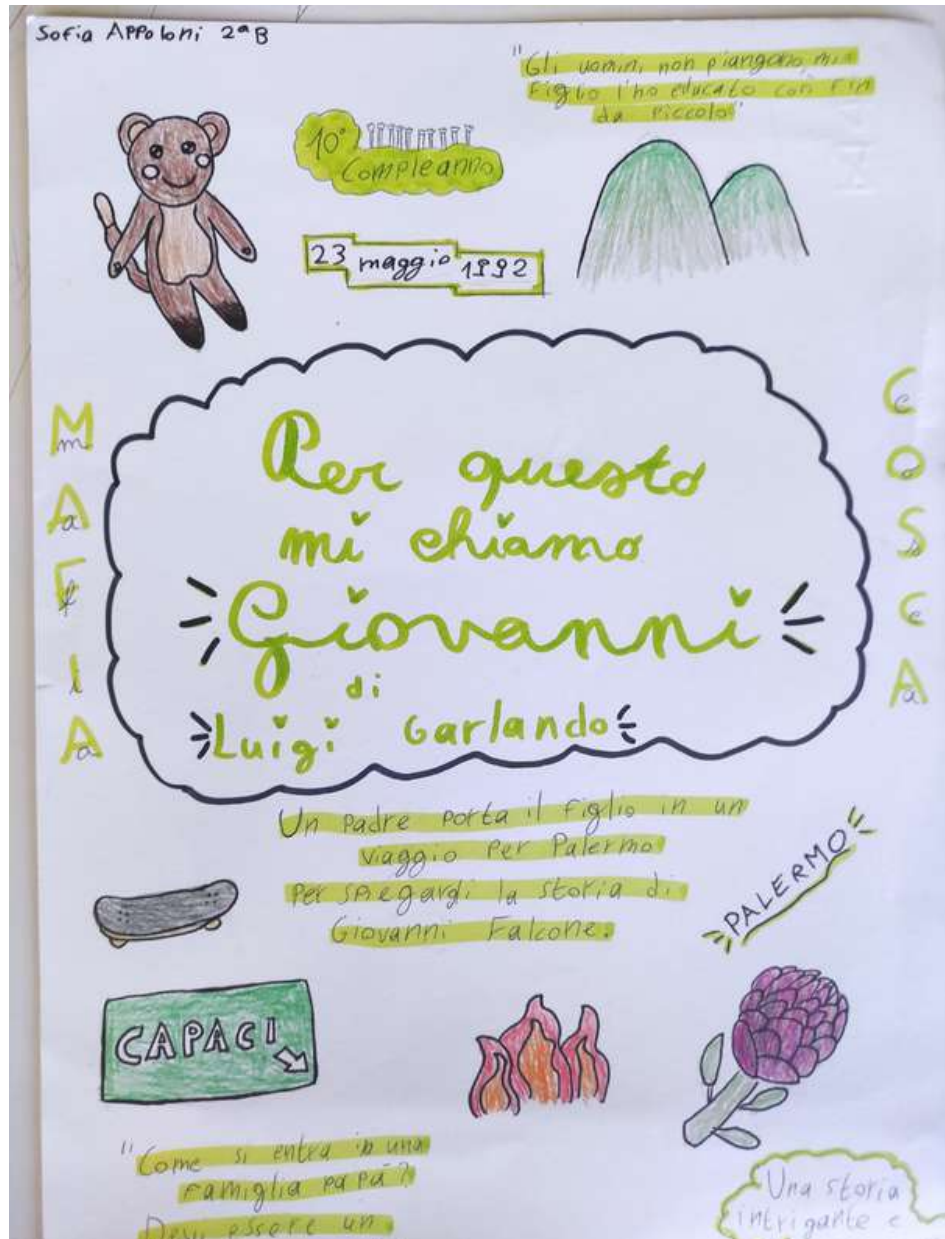 Sofia Appoloni 2ªB
"Gli uomini non piangono, mio
Figlio l'ho educato così fin
da piccolo"
10°
Compleanno
23 maggio 1992
MAFIA
COSCA
Per questo
mi chiamo
Giovanni
di
Luigi Garlando
Un padre porta il figlio in un
viaggio per Palermo
per spiegargli la storia di
Giovanni Falcone.
PALERMO
CAPACI
"Come si entra in una
famiglia papà?
Devi essere un
Una storia
intrigante e